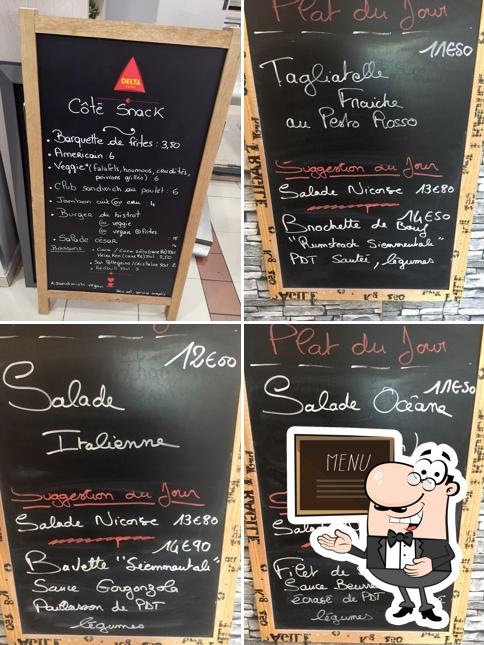 DELTA
Côté Snack
• Barquette de frites : 3,50
• Americain : 6
• Veggie* (falafels, houmous, crudités,
poivrons grillés) : 6
• Club sandwich au poulet : 6
• Jambon
: 4
• Burger du bistrot
veggie
vegan frites
• Salade césar
Boissons :
San Pellegrino
Redbull
Plat du Jour
11€50
Tagliatelle
Fraiche
au Pesto Rosso
Suggestion du Jour
Salade Nicoise 13€80
14€50
Brochette de Bœuf
"Rumsteack Siemmentale"
PDT Sautée, légumes
12€00
Salade
Italienne
Suggestion du Jour
Salade Nicoise 13€80
14€90
Bavette "Siemmentale"
Sauce Gorgonzola
Paillasson de PDT
légumes
Plat du Jour
11€50
Salade Océane
MENU
Filet de
Sauce Beurre
écrasé de PDT
légumes